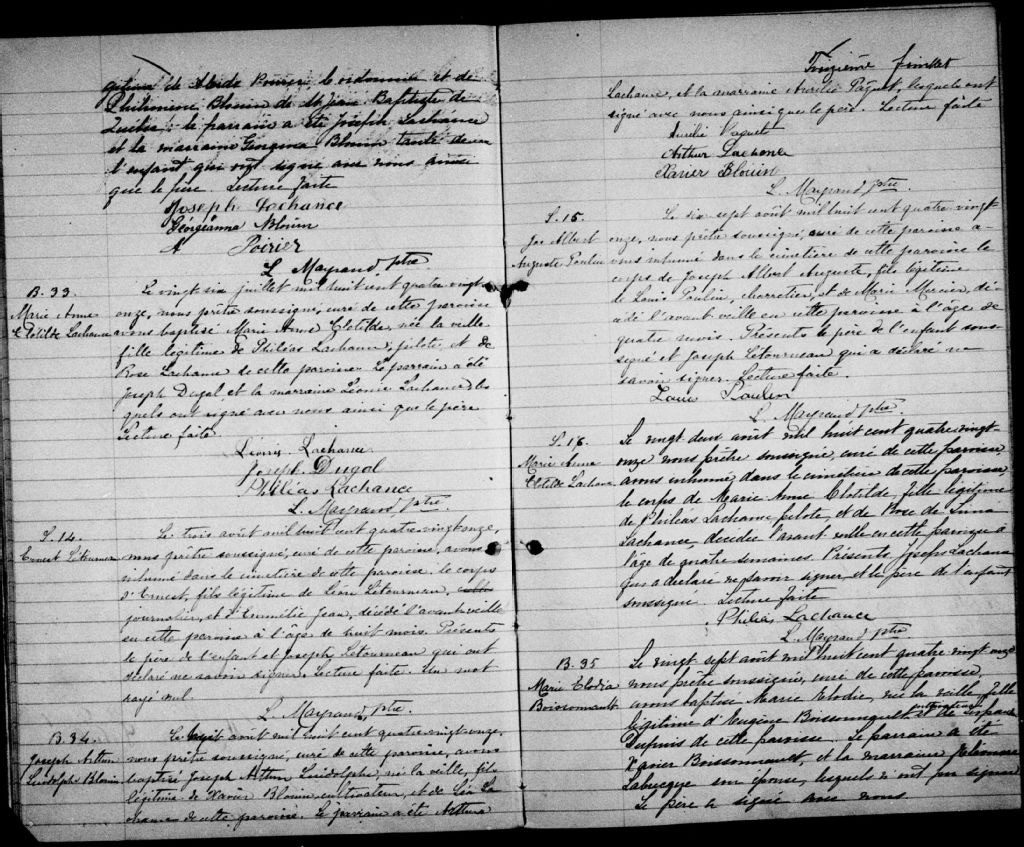 légitime de Alcide Poirier le cordonnier et de
Philomène Blouin de St Jean Baptiste de
Québec : le parrain a été Joseph Lachance
et la marraine Georgina Blouin tante de
l'enfant qui ont signé avec nous ainsi
que le père. Lecture faite
Joseph Lachance
Géorgeanna Blouin
A Poirier
L. Mayrand ptre
B. 33.
Marie Anne
Clotilde Lachance
Le vingt six juillet mil huit cent quatre vingt
onze, nous prêtre soussigné, curé de cette paroisse
avons baptisé Marie Anne Clotilde, née la veille
fille légitime de Philéas Lachance, pilote, et de
Rose Lachance de cette paroisse. Le parrain a été
Joseph Dugal et la marraine Léonie Lachance les
quels ont signé avec nous ainsi que le père
Lecture faite.
Lachance
Joseph Dugal
Philéas Lachance
L. Mayrand ptre
S. 14.
Ernest Létourneau
Le trois août mil huit cent quatre vingt onze,
nous prêtre soussigné, curé de cette paroisse, avons
inhumé dans le cimetière de cette paroisse le corps
d'Ernest, fils légitime de Léon Létourneau,
journalier, et d'Emmélie Jean, décédé l'avant veille
en cette paroisse à l'âge de huit mois. Présents
le père de l'enfant et Joseph Létourneau qui ont
déclaré ne savoir signer. Lecture faite. Un mot
rayé nul.
L. Mayrand, ptre.
B. 34.
Joseph Arthur
Lindolphe Blouin
Le huit août mil huit cent quatre vingt onze,
nous prêtre soussigné, curé de cette paroisse, avons
baptisé Joseph Arthur Lindolphe, né la veille, fils
légitime de Xavier Blouin, cultivateur, et de Léa La
chance de cette paroisse. Le parrain a été Arthur
Treizième feuillet
Lachance, et la marraine Aurélie Paquet, lesquels ont
signé avec nous ainsi que le père. Lecture faite
Aurélie Paquet
Arthur Lachance
Xavier Blouin
L. Mayrand ptre
S. 15.
Jos Albert
Auguste Poulin
Le six sept août mil huit cent quatre vingt-
onze, nous prêtre soussigné, curé de cette paroisse a-
vons inhumé dans le cimetière de cette paroisse le
corps de Joseph Albert Auguste, fils légitime
de Louis Poulin, charretier, et de Marie Mercier, dé
cédé l'avant veille en cette paroisse à l'âge de
quatre mois. Présents le père de l'enfant sous-
signé et Joseph Létourneau qui a déclaré ne
savoir signer. Lecture faite.
Louis Poulin
L. Mayrand ptre.
S. 16.
Marie Anne
Clotilde Lachance
Le vingt deux août mil huit cent quatre vingt-
onze nous prêtre soussigné, curé de cette paroisse
avons inhumé dans le cimetière de cette paroisse
le corps de Marie Anne Clotilde, fille légitime
de Philéas Lachance, pilote, et de Rose de Lima
Lachance, décédée l'avant veille en cette paroisse à
l'âge de quatre semaines. Présents Joseph Lachance
qui a déclaré ne savoir signer et le père de l'enfant
soussigné. Lecture faite
Philéas Lachance
L. Mayrand ptre
B. 35
Marie Elodia
Boissonnault
Le vingt sept août mil huit cent quatre vingt onze
nous prêtre soussigné, curé de cette paroisse,
avons baptisé Marie Elodie, née la veille, fille
légitime d'Eugène Boissonnault et de
Dupuis de cette paroisse. Le parrain a été
Xavier Boissonnault, et la marraine Philomène
Labecque son épouse, lesquels n'ont pu signer
Le père a signé avec nous